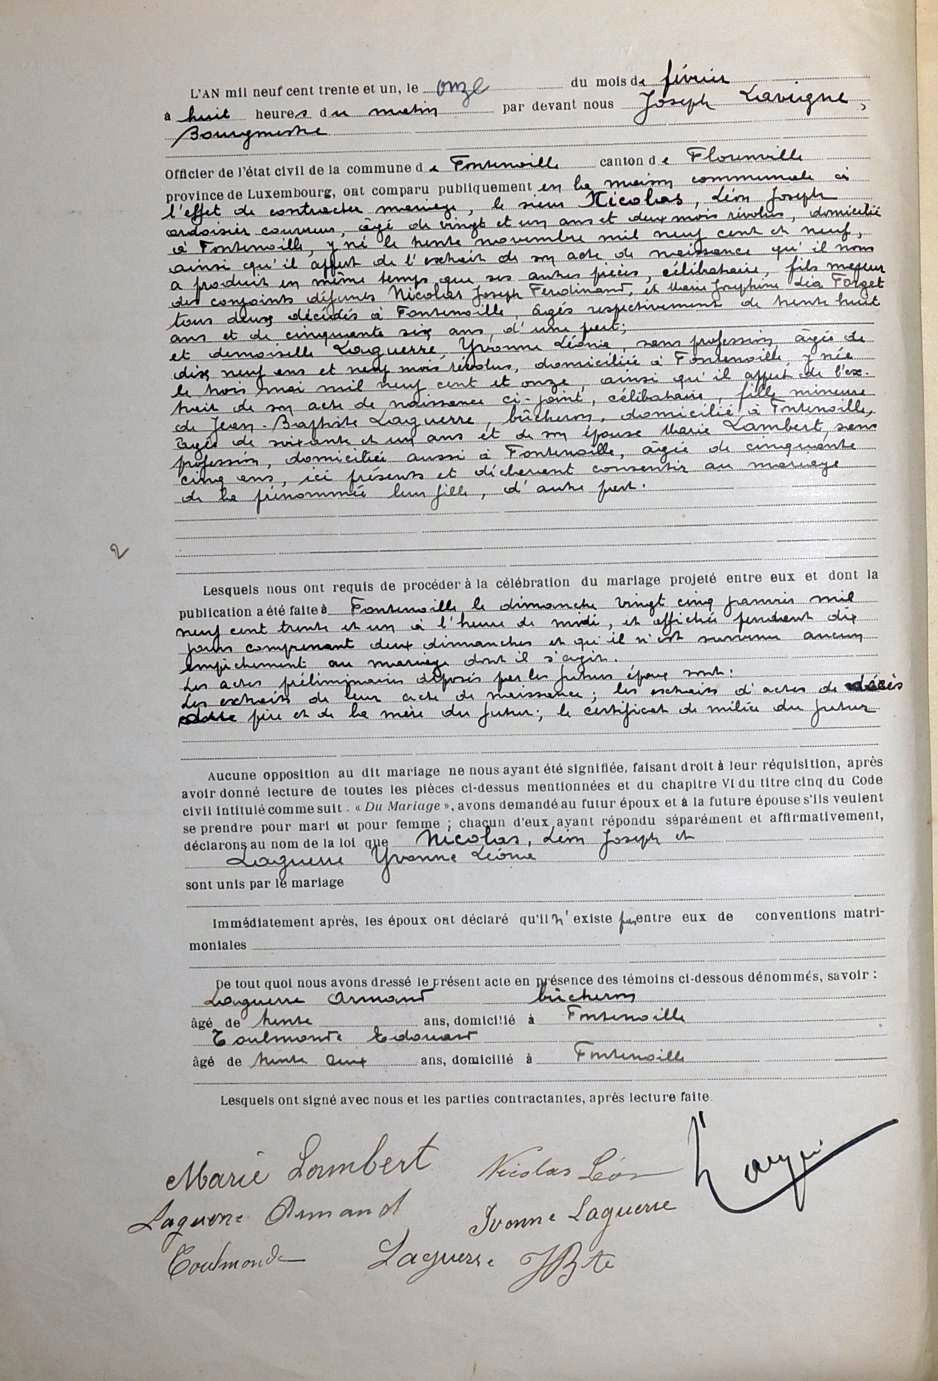 L'AN mil neuf cent trente et un, le onze du mois de février
à huit heures du matin par devant nous Joseph Lavigne,
Bourgmestre
Officier de l'état civil de la commune de Fontenoille canton de Florenville
province de Luxembourg, ont comparu publiquement en la maison communale à
l'effet de contracter mariage, le sieur Nicolas, Léon Joseph
ardoisier couvreur, âgé de vingt et un ans et deux mois révolus, domicilié
à Fontenoille, y né le trente novembre mil neuf cent et neuf,
ainsi qu'il appert de l'extrait de son acte de naissance qu'il nous
a produit en même temps que ses autres pièces, célibataire, fils majeur
des conjoints défunts Nicolas Joseph Ferdinand, et Marie Joséphine Léa Forget
tous deux décédés à Fontenoille, âgés respectivement de trente huit
ans et de cinquante six ans, d'une part;
et demoiselle Laguerre, Yvonne Léonie, sans profession, âgée de
dix neuf ans et neuf mois révolus, domiciliée à Fontenoille, y née
le trois mai mil neuf cent et onze, ainsi qu'il appert de l'ex-
trait de son acte de naissance ci-joint, célibataire, fille mineure
de Jean-Baptiste Laguerre, bûcheron, domicilié à Fontenoille,
âgé de soixante et un ans et de son épouse Marie Lambert, sans
profession, domiciliée aussi à Fontenoille, âgée de cinquante
cinq ans, ici présents et déclarent consentir au mariage
de la prénommée leur fille, d'autre part.
2
Lesquels nous ont requis de procéder à la célébration du mariage projeté entre eux et dont la
publication a été faite à Fontenoille le dimanche vingt cinq janvier mil
neuf cent trente et un à l'heure de midi, et affichée pendant dix
jours comprenant deux dimanches et qu'il n'est survenu aucun
empêchement au mariage dont il s'agit.
Les actes préliminaires déposés par les futurs époux sont:
Les extraits de leur acte de naissance; les extraits d'actes de décès
père et de la mère du futur; le certificat de milice du futur
Aucune opposition au dit mariage ne nous ayant été signifiée, faisant droit à leur réquisition, après
avoir donné lecture de toutes les pièces ci-dessus mentionnées et du chapitre VI du titre cinq du Code
civil intitulé comme suit : « Du Mariage », avons demandé au futur époux et à la future épouse s'ils veulent
se prendre pour mari et pour femme ; chacun d'eux ayant répondu séparément et affirmativement,
déclarons au nom de la loi que Nicolas, Léon Joseph et
Laguerre Yvonne Léonie
sont unis par le mariage
Immédiatement après, les époux ont déclaré qu'il n'existe pas entre eux de conventions matri-
moniales
De tout quoi nous avons dressé le présent acte en présence des témoins ci-dessous dénommés, savoir :
Laguerre Armand bûcheron
âgé de trente ans, domicilié à Fontenoille
Toulmonde Edouard
âgé de trente deux ans, domicilié à Fontenoille
Lesquels ont signé avec nous et les parties contractantes, après lecture faite.
Marie Lambert Nicolas Léon
Laguerre Armand Yvonne Laguerre
Toulmonde Laguerre JBte